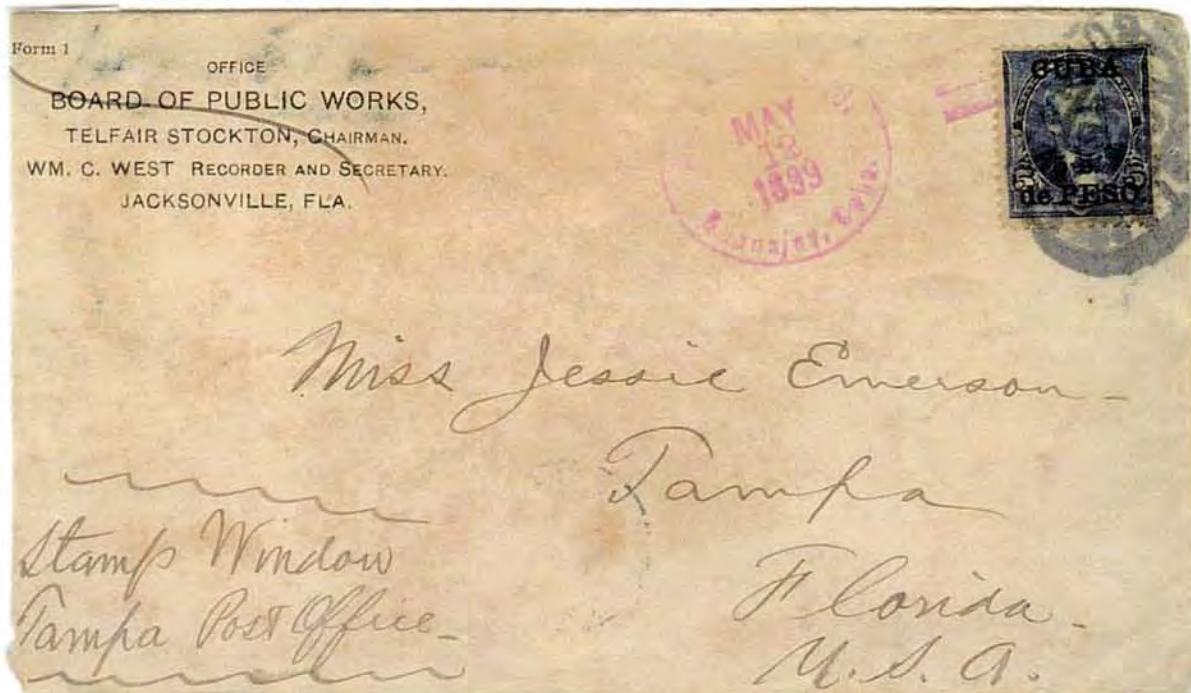 Form 1
OFFICE
BOARD OF PUBLIC WORKS,
TELFAIR STOCKTON, CHAIRMAN.
WM. C. WEST RECORDER AND SECRETARY.
JACKSONVILLE, FLA.
MAY
12
1899
CUBA
de PESO.
Miss Jessie Emerson
Tampa
Florida
U.S.A.
Stamp Window
Tampa Post Office